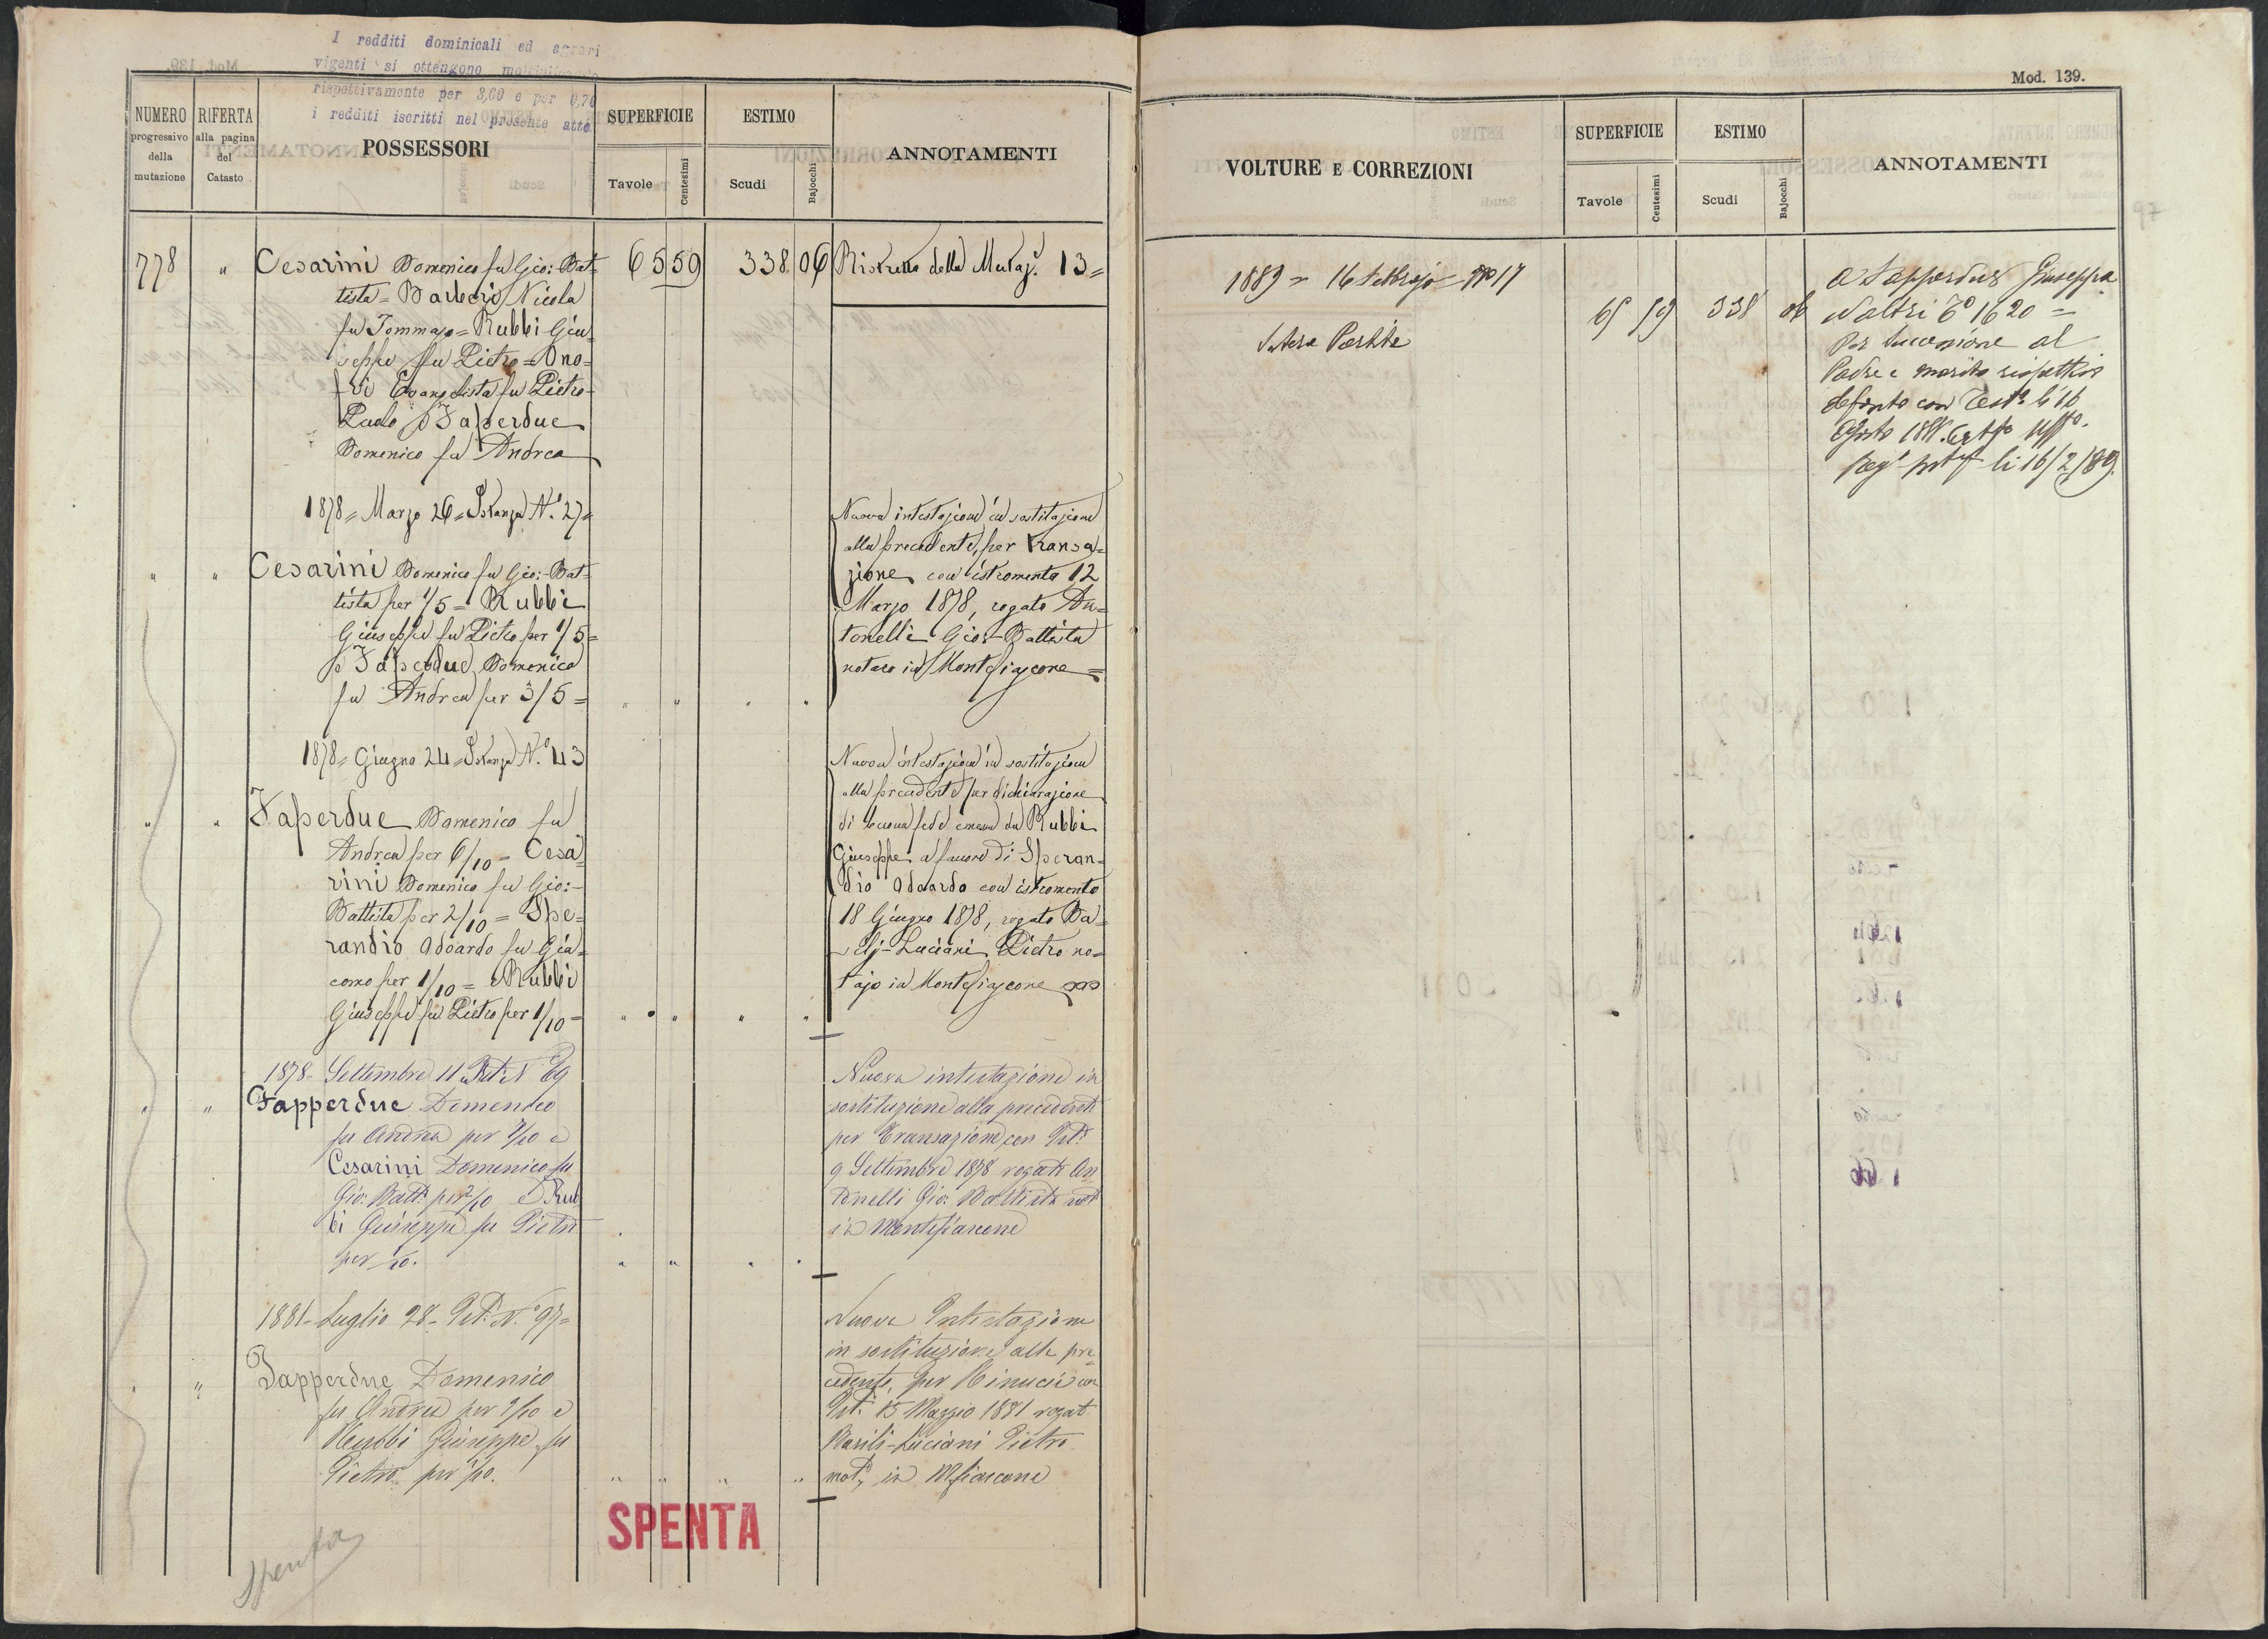 I redditi dominicali ed agrari
vigenti si ottengono
rispettivamente per 3,60 e per 0,70
i redditi iscritti nel presente atto
NUMERO
progressivo
della
mutazione
RIFERTA
alla pagina
del
Catasto
POSSESSORI
SUPERFICIE
Tavole
Centesimi
ESTIMO
Scudi
Bajocchi
ANNOTAMENTI
778 " Cesarini Domenico fu Gio: Bat- 65 59 338 06 Ristretto della Mutaz. 13=
tista = Barberi Nicola
fu Tommaso = Rubbi Giu
seppe fu Pietro = Ono=
fri Evangelista fu Pietro
Paolo Faperdue
Domenico fu Andrea
1878 = Marzo 26 = Istanza N.° 27=
" " Cesarini Domenico fu Gio: Bat-
tista per 1/5 = Rubbi
Giuseppe fu Pietro per 1/5=
Faperdue Domenico
fu Andrea per 3/5 =
Nuova intestazione in sostituzione
alla precedente, per transa=
zione con istromento 12
Marzo 1878, rogato An=
tonelli Gio:-Battista
notaro in Montefiascone =
1878 = Giugno 24 = Istanza N.° 43
" " Faperdue Domenico fu
Andrea per 6/10 = Cesa
rini Domenico fu Gio:-
Battista per 2/10 = Spe=
randio Odoardo fu Gia=
como per 1/10 = Rubbi
Giuseppe fu Pietro per 1/10 =
Nuova intestazione in sostituzione
alla precedente per dichiarazione
di buona fede emessa da Rubbi
Giuseppe a favore di Speran=
dio Odoardo con istromento
18 Giugno 1878, rogato Ba=
Luciani Pietro no=
tajo in Montefiascone
1878 - Settembre 11 N 69
" " Fapperdue Domenico
fu Andrea per 7/10 e
Cesarini Domenico fu
Gio: Batt. per 2/10 e Rub
bi Giuseppe fu Pietro
per 1/10.
Nuova intestazione in
sostituzione alla precedente
per transazione con
9 Settembre 1878 rogato An
tonelli Gio: Battista not
in Montefiascone
1881 - Luglio 28 - N.° 97=
" " Fapperdue Domenico
fu Andrea per 9/10 e
Rubbi Giuseppe fu
Pietro per 1/10.
Nuova Intestazione
in sostituzione alla pre
cedente, per Rinuncia con
15 Maggio 1881 rogat
Basili-Luciani Pietro
not. in Mfiascone
SPENTA
Spenta
Mod. 139.
VOLTURE E CORREZIONI
SUPERFICIE
Tavole
Centesimi
ESTIMO
Scudi
Bajocchi
ANNOTAMENTI
1889 = 16 Febbrajo = N° 17
Intera Partita
65 59 338 06
a Fapperdue Giuseppa
ed altri 1620 =
Per Successione al
Padre e marito rispettivo
defunto con Test. li 16
Agosto
li 16/2/89.